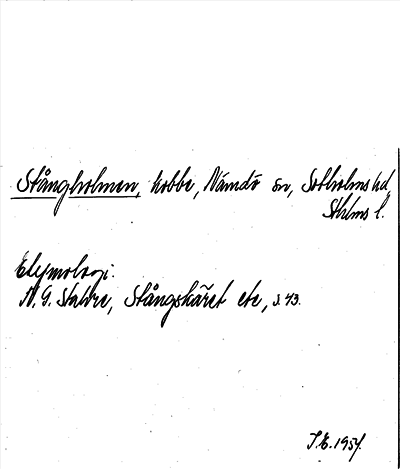 Stångholmen, kobbe, Nämdö sn, Sotholms hd,
Sthlms l.
Etymologi:
N. G. Stahre, Stångskäret etc, s. 43.
S.E. 1957.